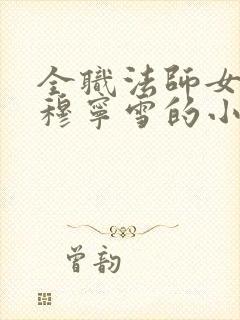 全職法師女
穆寧雪的小
曾韵